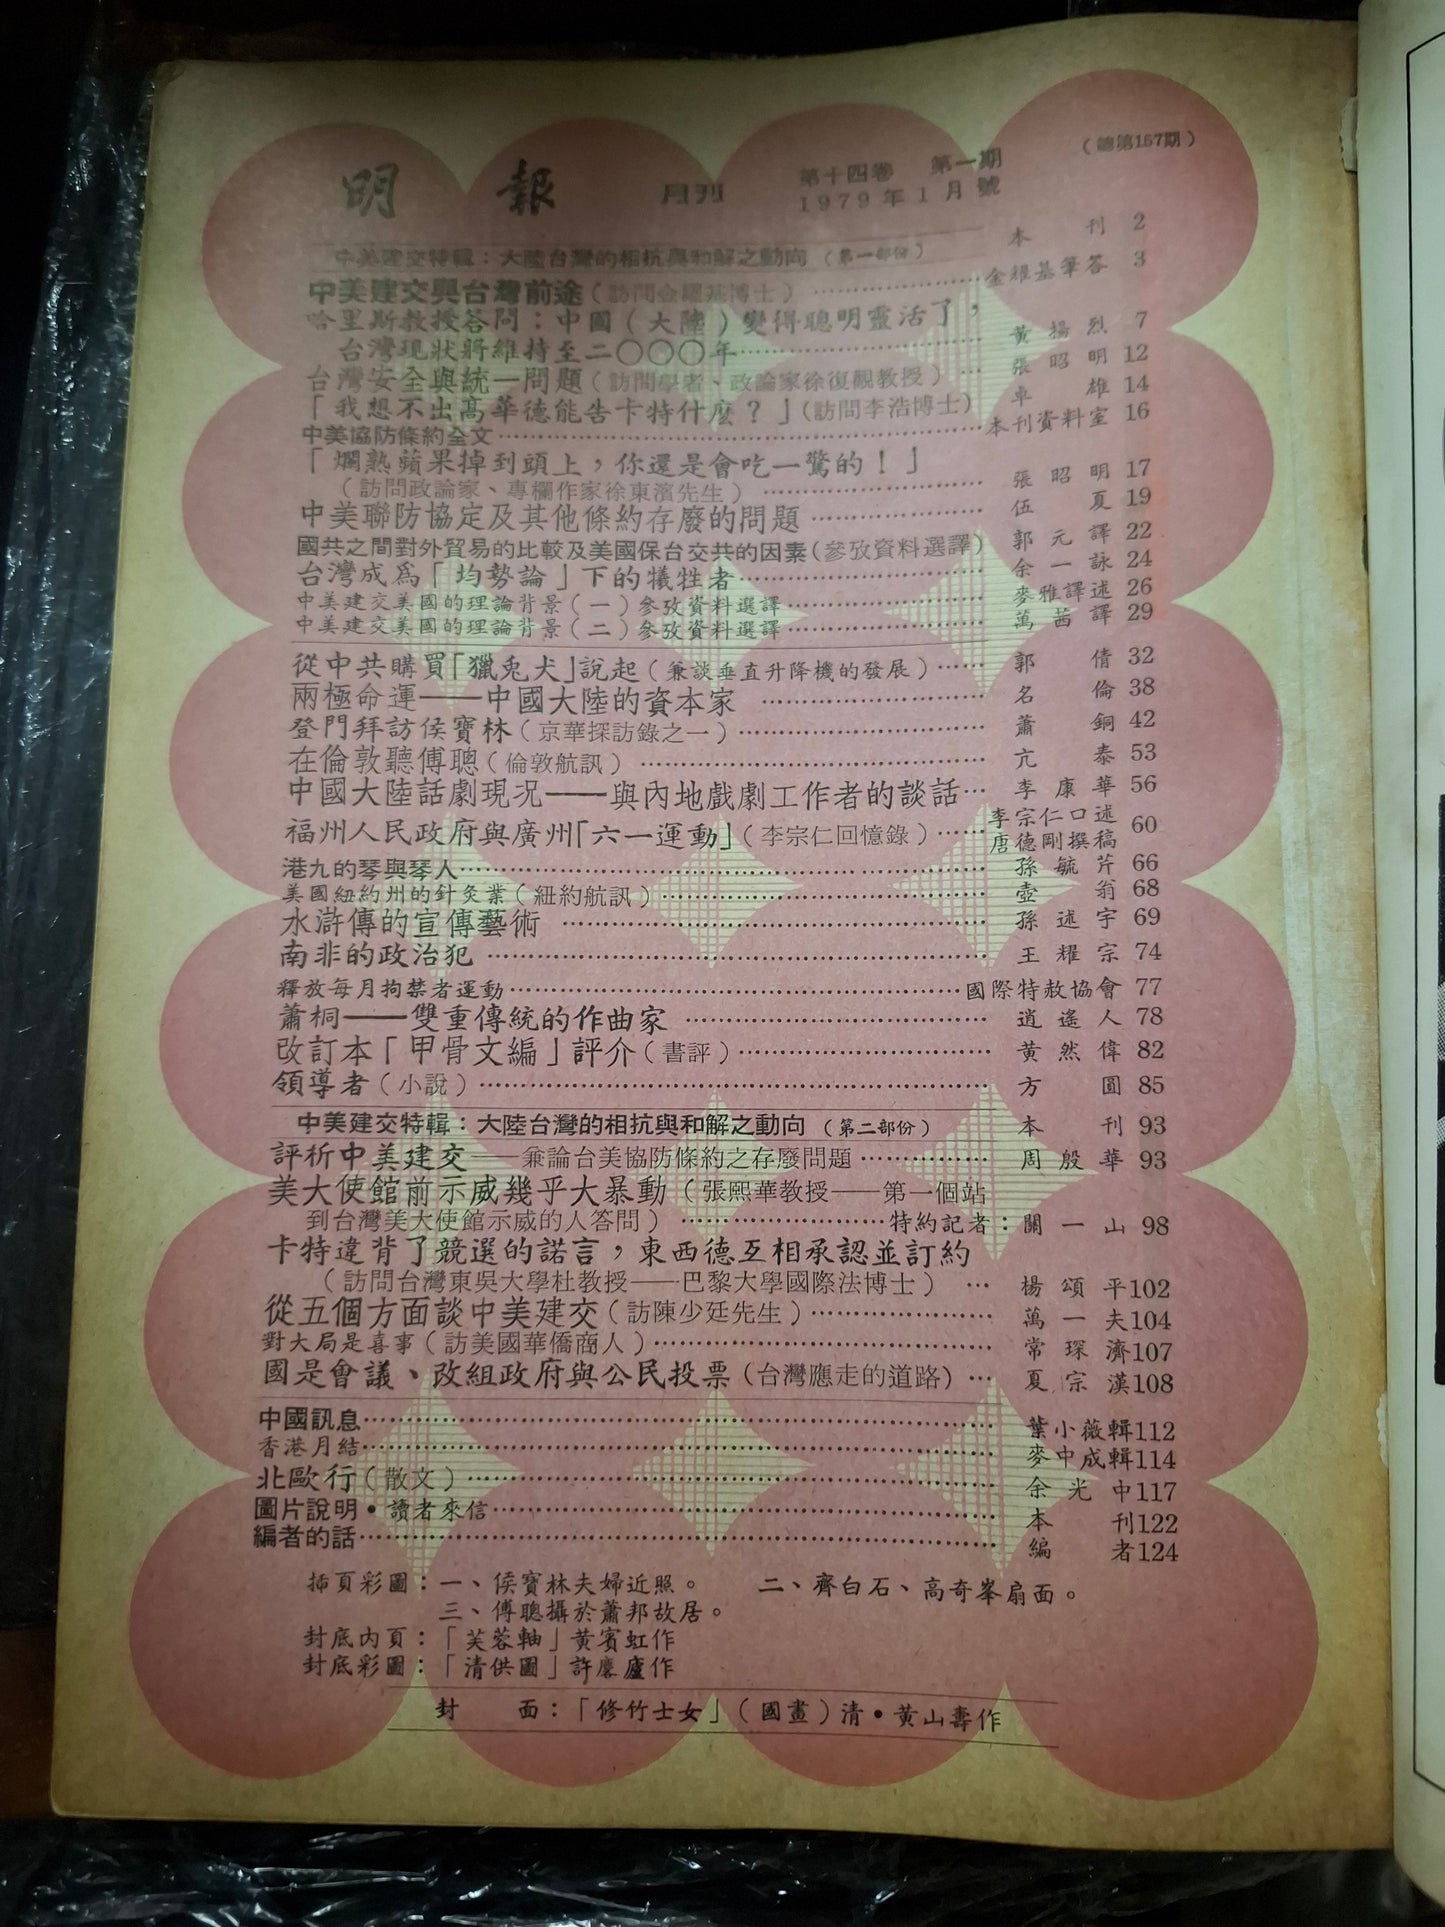 明報 月刊 第十四卷 第一期 (總第157期)
1979年1月號
中美建交特輯：大陸台灣的相抗與和解之動向（第一部份） 本刊 2
中美建交與台灣前途（訪問金耀基博士）……金耀基筆答 3
哈里斯教授答問：中國（大陸）變得聰明靈活了，
台灣現狀將維持至二〇〇〇年……黃揚烈 7
台灣安全與統一問題（訪問學者、政論家徐復觀教授）…張昭明 12
「我想不出高華德能告卡特什麽？」（訪問李浩博士） 卓雄 14
中美協防條約全文……本刊資料室 16
「爛熟蘋果掉到頭上，你還是會吃一驚的！」
（訪問政論家、專欄作家徐東濱先生）……張昭明 17
中美聯防協定及其他條約存廢的問題……伍夏 19
國共之間對外貿易的比較及美國保台交共的因素（參攷資料選譯） 郭元譯 22
台灣成爲「均勢論」下的犧牲者……余一詠 24
中美建交美國的理論背景（一）參攷資料選譯……麥雅譯述 26
中美建交美國的理論背景（二）參攷資料選譯……萬茜譯 29
從中共購買「獵兎犬」說起（兼談垂直升降機的發展）……郭倩 32
兩極命運——中國大陸的資本家……名倫 38
登門拜訪侯寶林（京華探訪錄之一）……蕭銅 42
在倫敦聽傅聰（倫敦航訊）……亢泰 53
中國大陸話劇現况——與內地戲劇工作者的談話…李康華 56
福州人民政府與廣州「六一運動」（李宗仁回憶錄）……李宗仁口述 唐德剛撰稿 60
港九的琴與琴人……孫毓芹 66
美國紐約州的針灸業（紐約航訊）……壺翁 68
水滸傳的宣傳藝術……孫述宇 69
南非的政治犯……王耀宗 74
釋放每月拘禁者運動……國際特赦協會 77
蕭桐——雙重傳統的作曲家……逍遙人 78
改訂本「甲骨文編」評介（書評）……黃然偉 82
領導者（小說）……方圓 85
中美建交特輯：大陸台灣的相抗與和解之動向（第二部份） 本刊 93
評析中美建交——兼論台美協防條約之存廢問題……周殷華 93
美大使館前示威幾乎大暴動（張熙華教授——第一個站
到台灣美大使館示威的人答問）……特約記者：關一山 98
卡特違背了競選的諾言，東西德互相承認並訂約
（訪問台灣東吳大學杜教授——巴黎大學國際法博士）…楊頌平 102
從五個方面談中美建交（訪陳少廷先生）……萬一夫 104
對大局是喜事（訪美國華僑商人）……常琛濟 107
國是會議、改組政府與公民投票（台灣應走的道路）…夏宗漢 108
中國訊息……葉小薇輯 112
香港月結……麥中成輯 114
北歐行（散文）……余光中 117
圖片說明•讀者來信……本刊 122
編者的話……編者 124
揷頁彩圖：一、侯寶林夫婦近照。 二、齊白石、高奇峯扇面。
三、傅聰攝於蕭邦故居。
封底內頁：「芙蓉軸」黃賓虹作
封底彩圖：「清供圖」許麐廬作
封面：「修竹士女」（國畫）清•黃山壽作